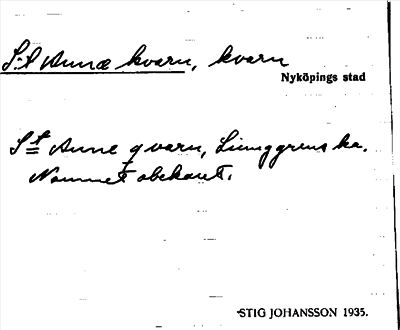 S:t Annæ kvarn, kvarn
Nyköpings stad
St Anne qvarn, Liunggrens ka.
Namnet obekant.
STIG JOHANSSON 1935.